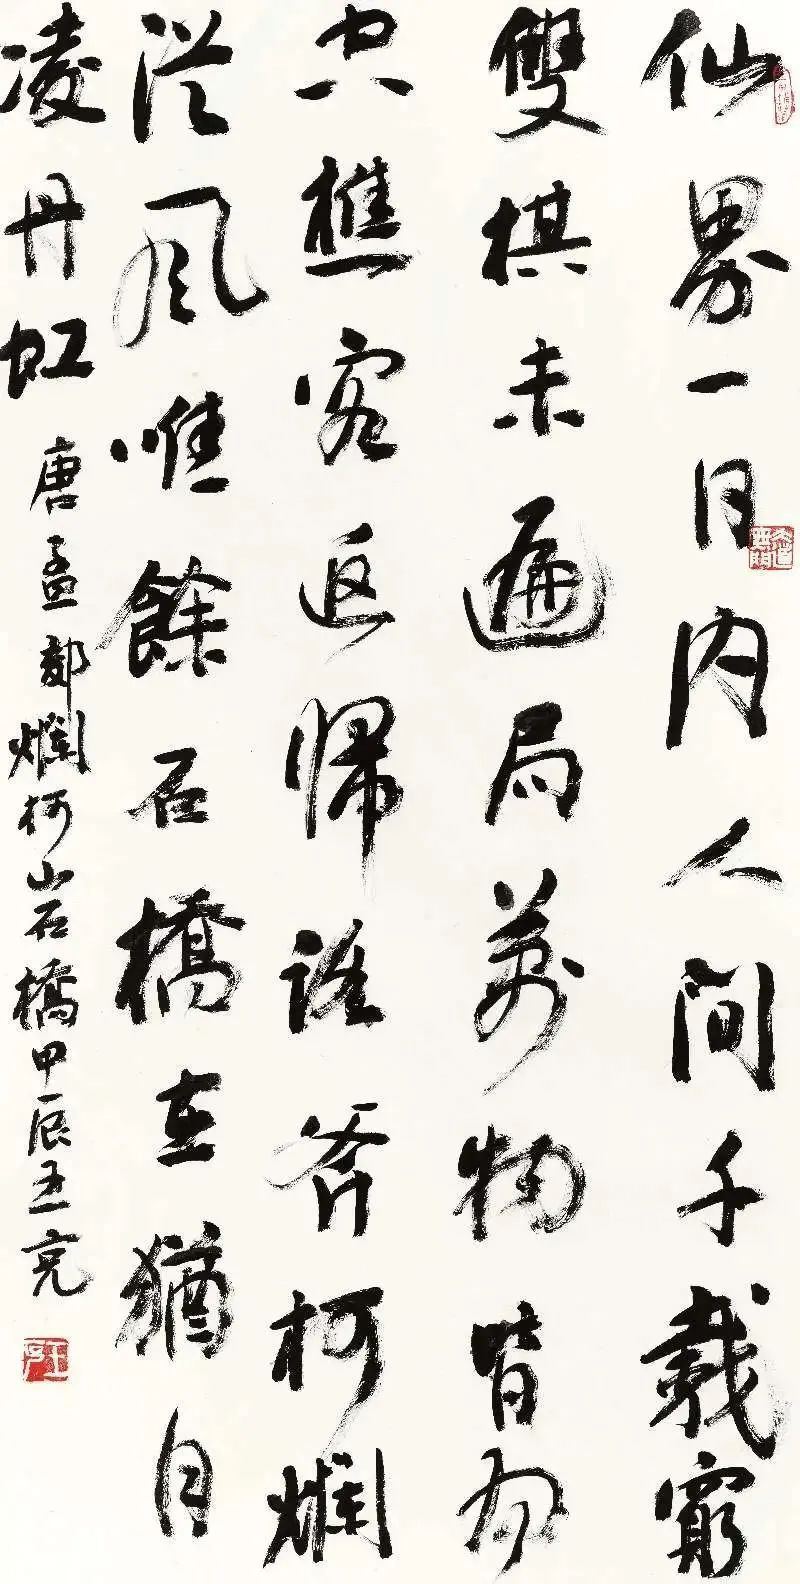 仙界一日内人間千載窮
雙棋未遍局萬物皆為
空樵客返歸路斧柯爛
從風唯餘石橋在猶自
凌丹虹
唐孟郊爛柯山石橋甲辰王亮